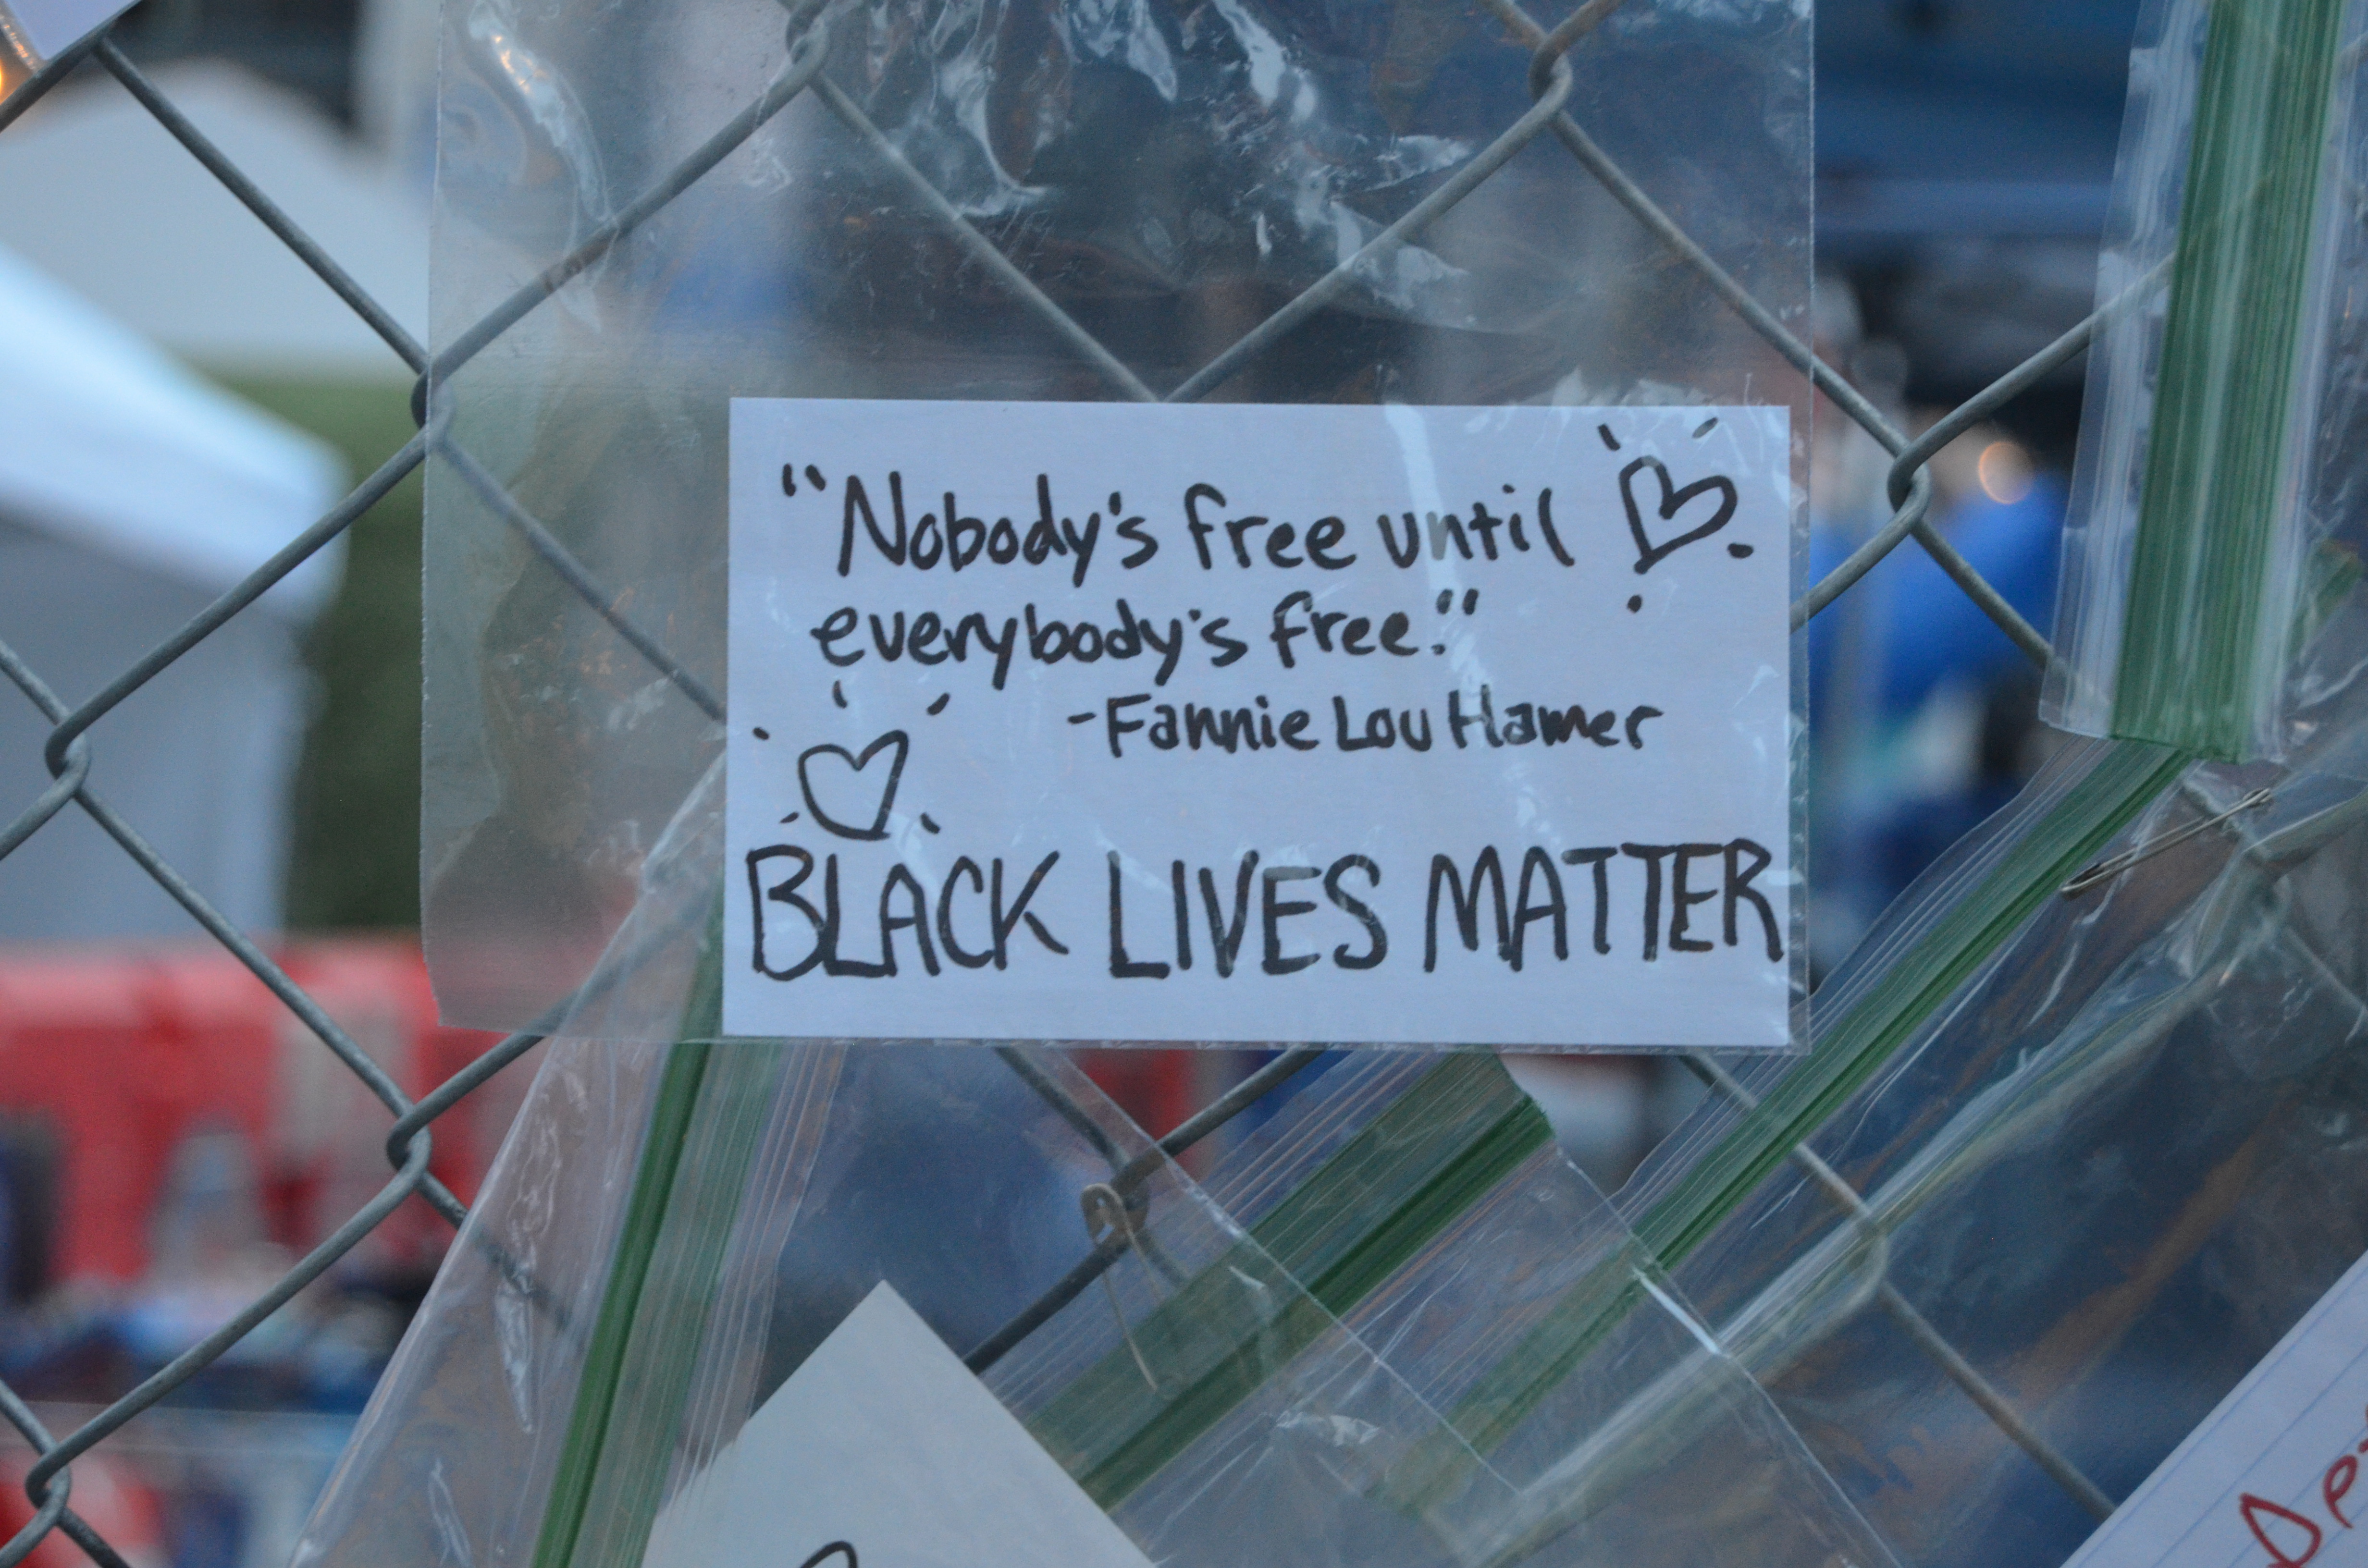 "Nobody's free until
everybody's free."
-Fannie Lou Hamer
BLACK LIVES MATTER